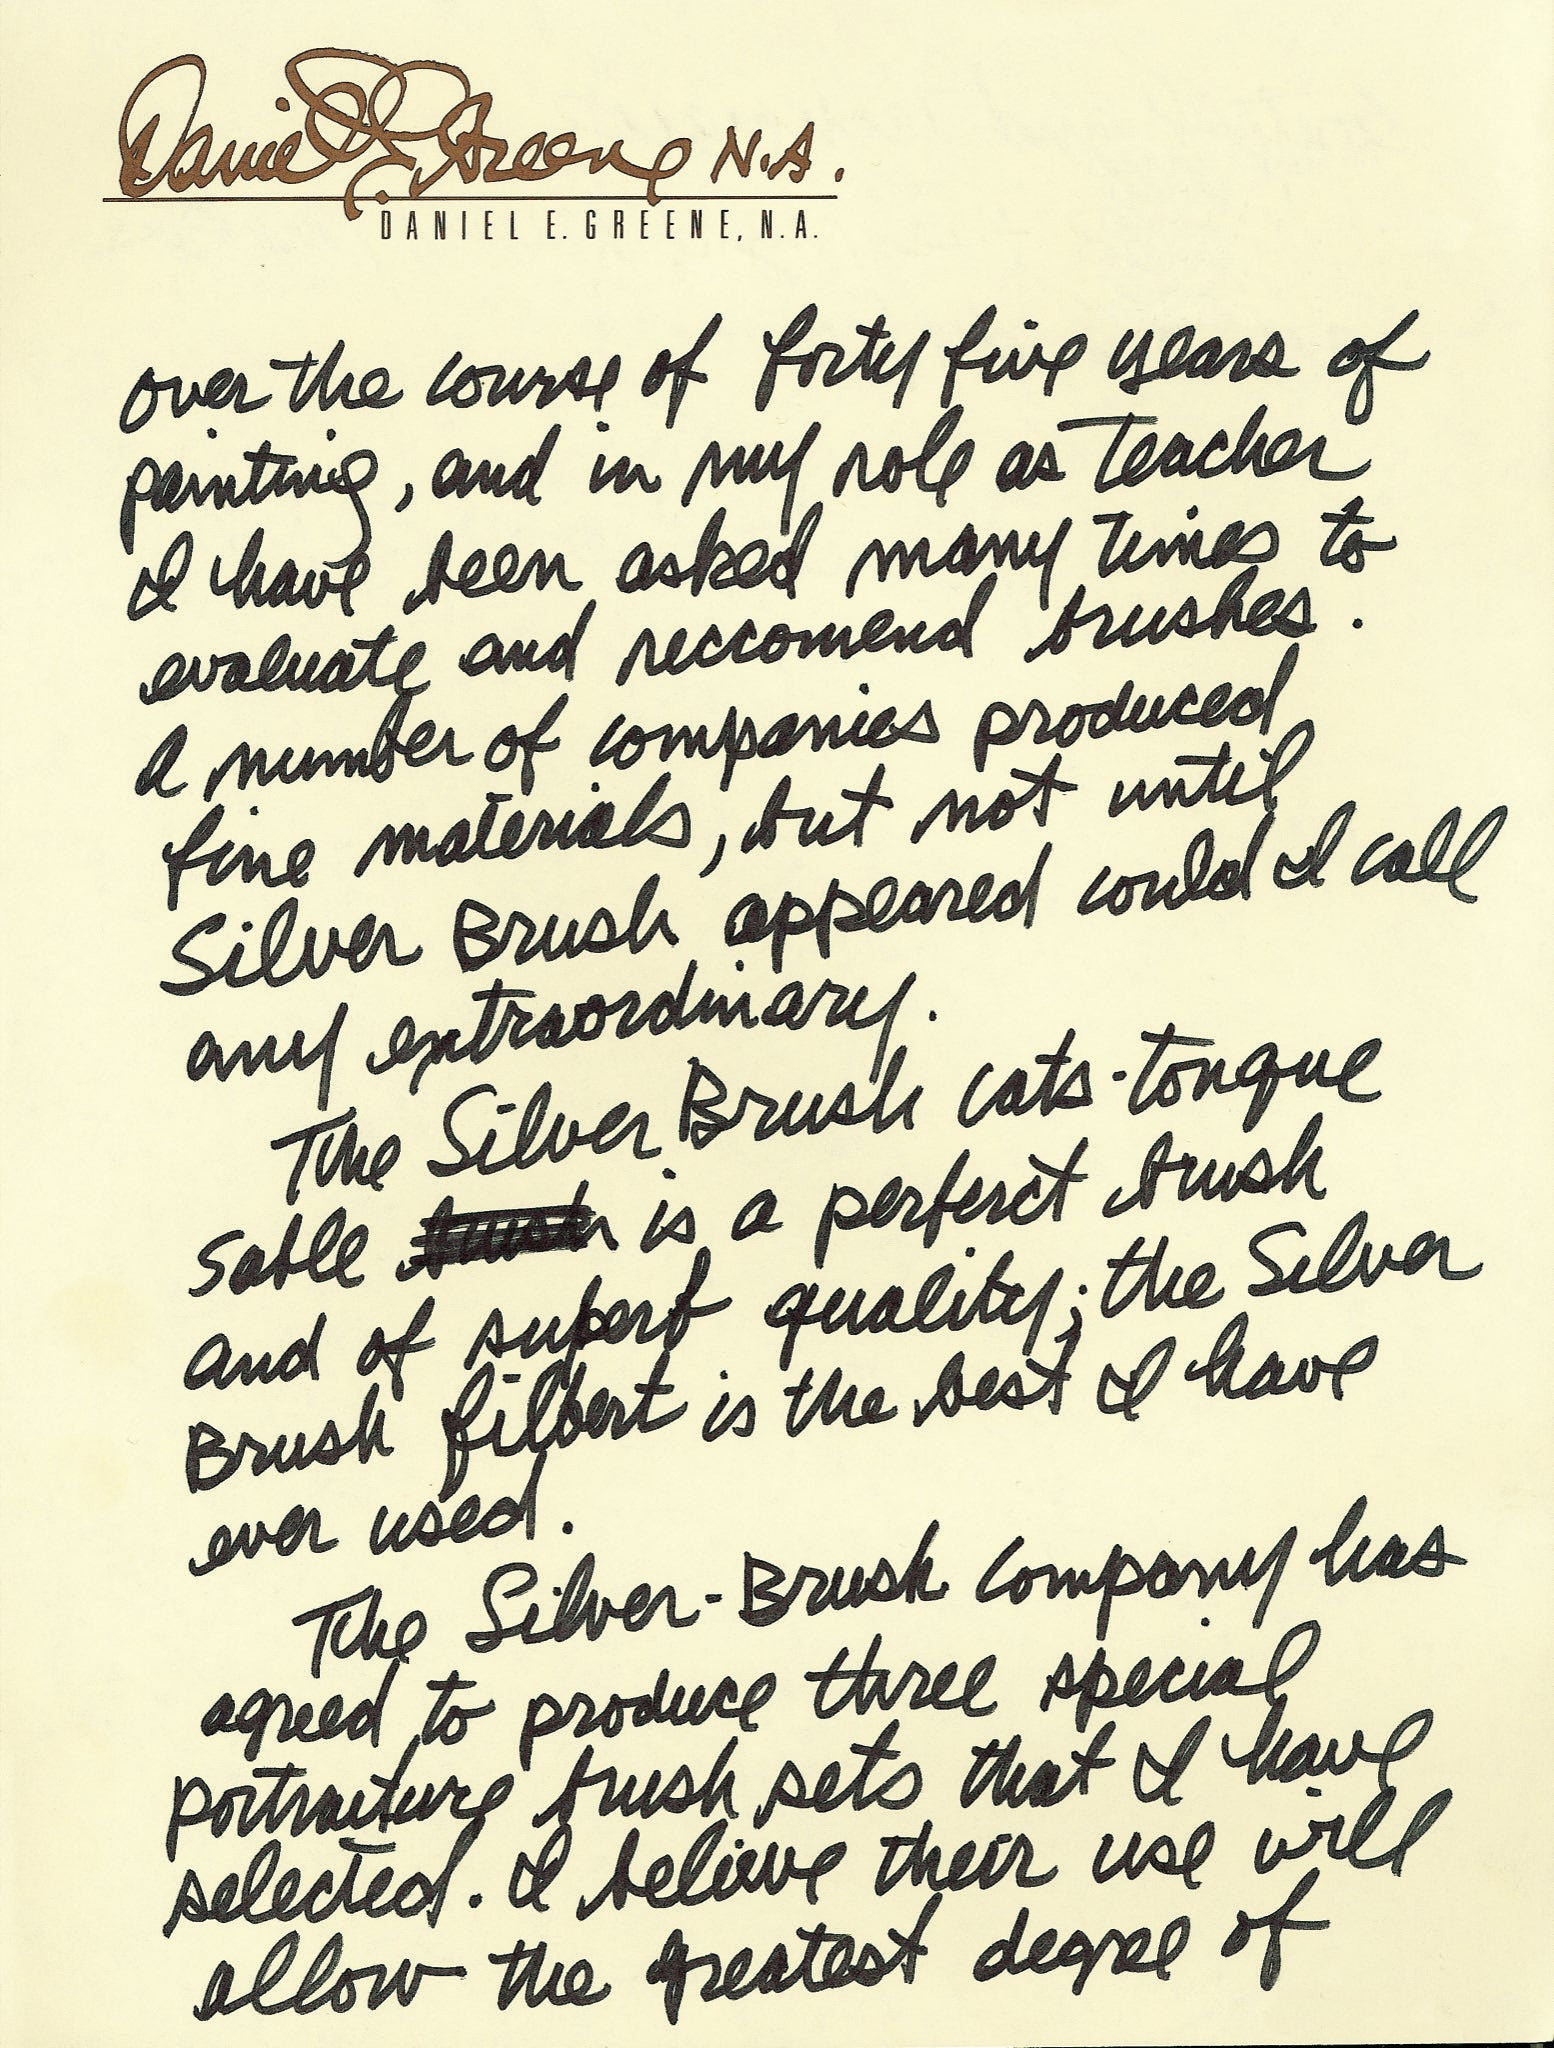 Daniel E. Greene N.A.
DANIEL E. GREENE, N.A.
over the course of forty five years of
painting, and in my role as Teacher
I have been asked many times to
evaluate and reccomend brushes.
A number of companies produced
fine materials, but not until
Silver Brush appeared could I call
any extraordinary.
The Silver Brush cats-tongue
sable brush is a perferct brush
and of superb quality; the Silver
Brush filbert is the best I have
ever used.
The Silver-Brush company has
agreed to produce three special
portraiture brush sets that I have
selected. I believe their use will
allow the greatest degree of